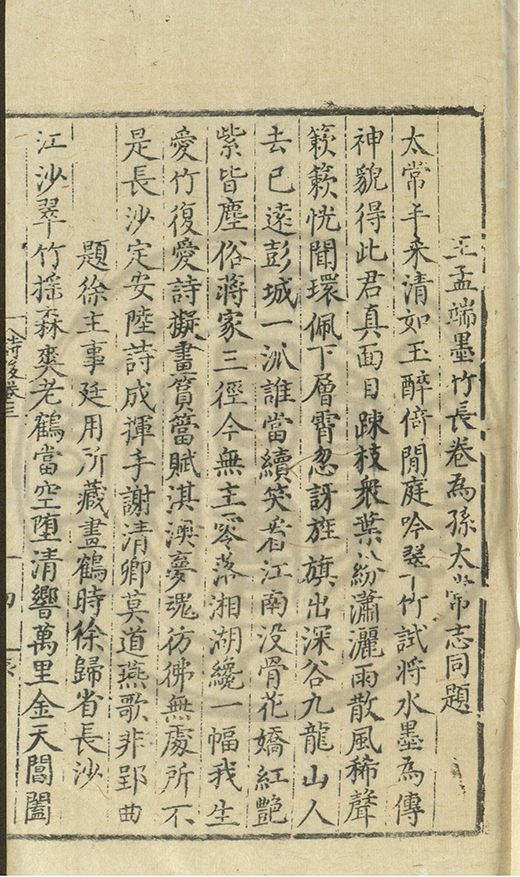 王孟端墨竹長卷為孫太常志同題
太常丰采清如玉醉倚閒庭吟翠竹試將水墨為傳
神貌得此君真面目踈枝衆葉紛瀟灑雨散風稀聲
簌簌恍聞環佩下層霄忽訝旌旗出深谷九龍山人
去已遠彭城一派誰當續笑看江南没骨花嬌紅艷
紫皆塵俗蔣家三徑今無主零落湘湖纔一幅我生
愛竹復愛詩擬畫篔簹賦淇澳夢魂彷彿無處所不
是長沙定安陸詩成揮手謝清卿莫道燕歌非郢曲
題徐主事廷用所藏畫鶴時徐歸省長沙
江沙翠竹摇森爽老鶴當空墮清響萬里金天閶闔
詩後卷三